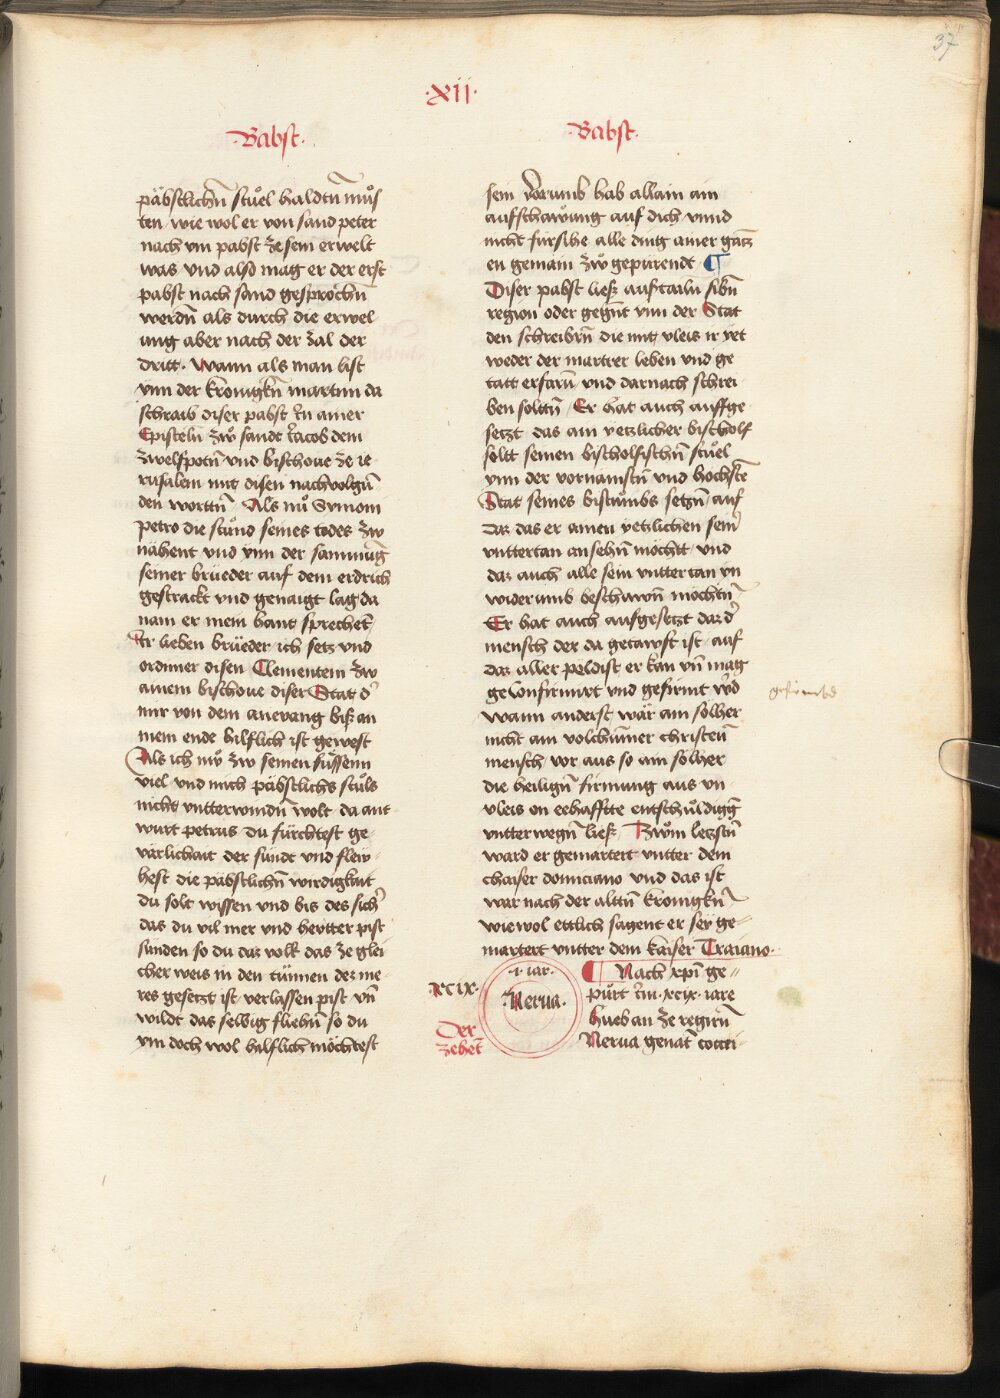 37
·xij·
·Babst·
päbstlichn̄ stůel haldtn̄ můs
ten wie wol er von sand peter
nach vm pabst ze sein erwelt
was vnd also mag er der erst
pabst nach sand gesprochn̄
werdn̄ als durch die erwel
ung aber nach der zal der
dritt· Wann als man list
ynn der kronigkn̄ martini da
schraib diser pabst In ainer
Episteln zẘ sande Jacob dem
zwelfpotn̄ vnd bischoue ze ie
rusalem mit disen nachvolgn̄
den worttn̄ Als nů Symoni
petro die stund seines todes zw
nähent vnd ynn der samnūg
seiner brüeder auf dem erdrich
gestrackt vnd genaigt lag da
nam er mein hant sprechet̄
Ir lieben brüeder ich setz vnd
ordinier disen Clementem zw
ainem bischoue diser Stat d'
mir von dem anevang bis an
mein ende hilflich ist gewest
Als ich nẘ zw seinen füssenn
viel vnd mich päbstlichs stůls
nicht vntterwindn̄ wolt da ant
wurt petrus du fürchtest ge
värlichait der sünde vnd fleiv
hest die päbstlichn̄ wirdigkait
du solt wissen vnd bis des sich'
das du vil mer vnd hertter pist
sunden so du daz volk das ze glei
cher weis in den tünnen dez me
res gesetzt ist verlassen pist vn̄
wildt das selbig fliehn̄ so du
ym doch wol hilflich möchtest
·Babst·
sein Dorumb hab allain ain
aufschawung auf dich vnnd
nicht fürsihe alle ding ainer gantz
en gemain zẘ gepürendt ¶
Diser pabst liess austailn sibn̄
region oder gegn̄t ynn der Stat
den schreibrn̄ die mit vleis ir yet
weder der martrer leben vnd ge
tatt erfarn̄ vnd darnach schrei
ben solttn̄ Er hat auch auffge
setzt das ain yetzlicher bischolf
soltt seinen bischolfischn̄ stůel
ynn der vornamstn̄ vnd hochstē
Stat seines bistůmbs setzn̄ auf
daz das er ainen yetzlichen sein'
vnttertan ansehn̄ möchtt vnd
daz auch alle sein vnttertan yn
widerumb beschawn̄ mochtn̄
Er hat auch aufgesetzt daz d'
mensch der da getawfft ist auf
daz aller poldist er kan vn̄ mag
geConfirmirt vnd gefirmt w'd
gefirmbd
wann anderst wär ain solher
nicht ain volchumner christen̄
mensch vor aus so ain solher
die heilign̄ firmung aus vn
vleis on eehafftte entschuldigḡ
vntter wegn̄ liess Zwom letzstn̄
ward er gemartert vntter dem
chaiser domiciano vnd das ist
war nach der alttn̄ kronigkn̄
wiewol ettlich sagent er sey ge
martert vntter dem kaiser Traiano·
·xcix·
Der
zehet̄
·i· iar·
·Nerua·
¶ Nach xp̄i ge
pürt Im·xcix·iare
hueb an ze regirn̄
Nerua genāt coccei